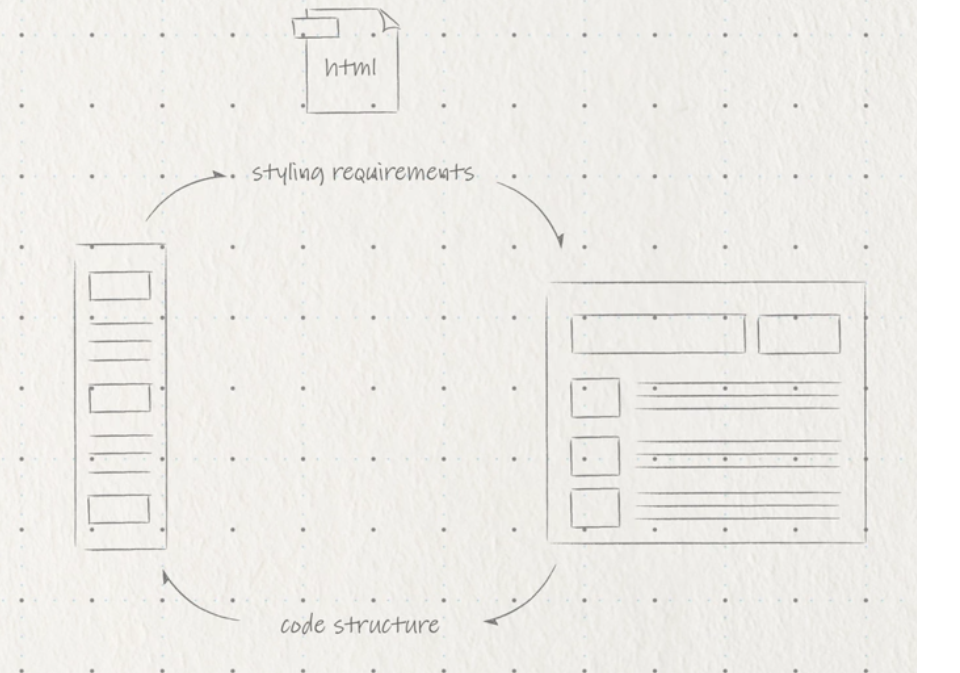 html
styling requirements
code structure